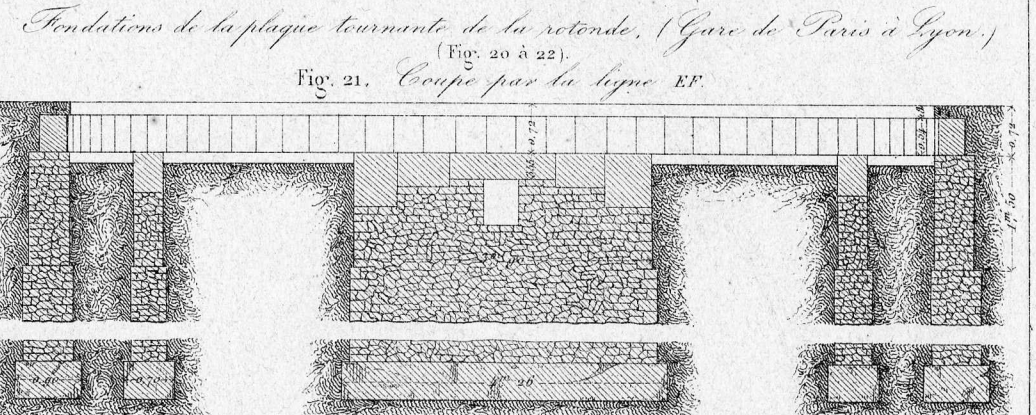 Fondations de la plaque tournante de la rotonde, (Gare de Paris à Lyon.)
(Fig. 20 à 22).
Fig. 21. Coupe par la ligne EF.
0.72
0.72
1m,00
0.90
0.70
4m 26